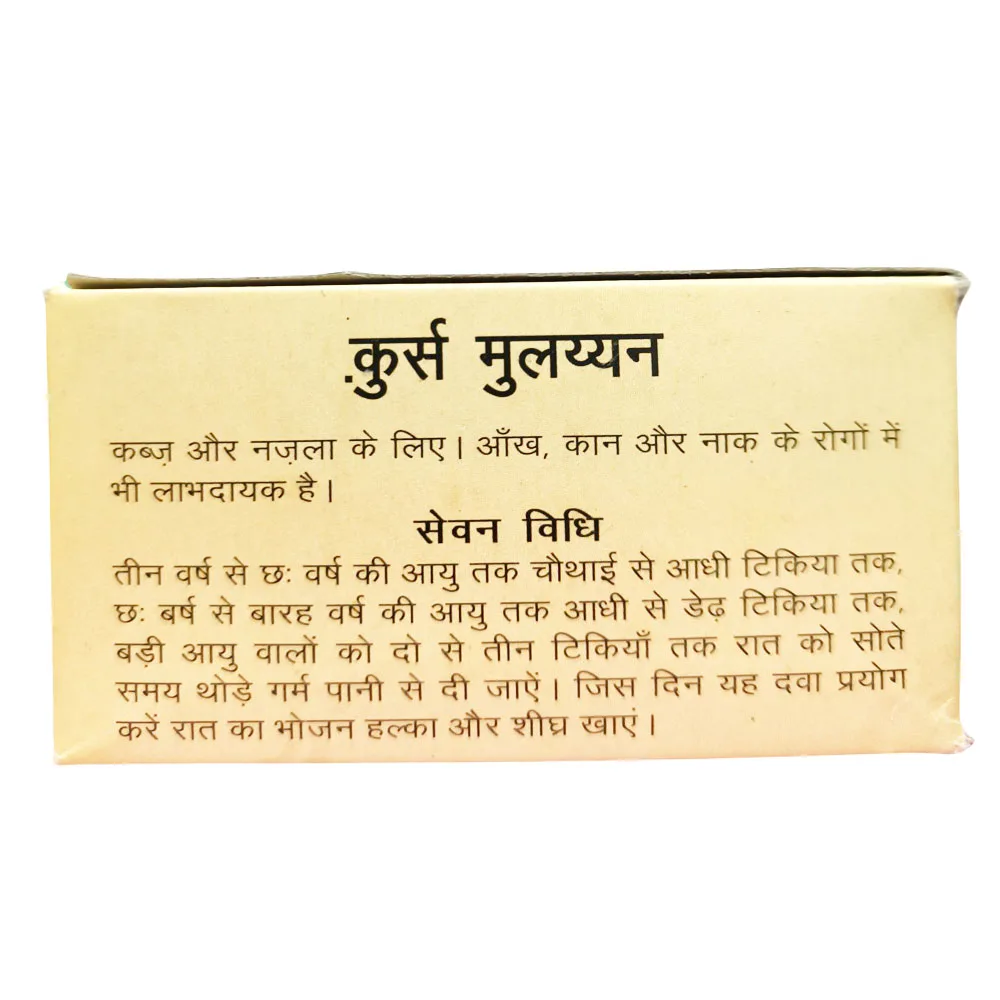 क़ुर्स मुलय्यन
कब्ज़ और नज़ला के लिए। आँख, कान और नाक के रोगों में
भी लाभदायक है।
सेवन विधि
तीन वर्ष से छः वर्ष की आयु तक चौथाई से आधी टिकिया तक,
छः बर्ष से बारह वर्ष की आयु तक आधी से डेढ़ टिकिया तक,
बड़ी आयु वालों को दो से तीन टिकियाँ तक रात को सोते
समय थोड़े गर्म पानी से दी जाऐं। जिस दिन यह दवा प्रयोग
करें रात का भोजन हल्का और शीघ्र खाएं।